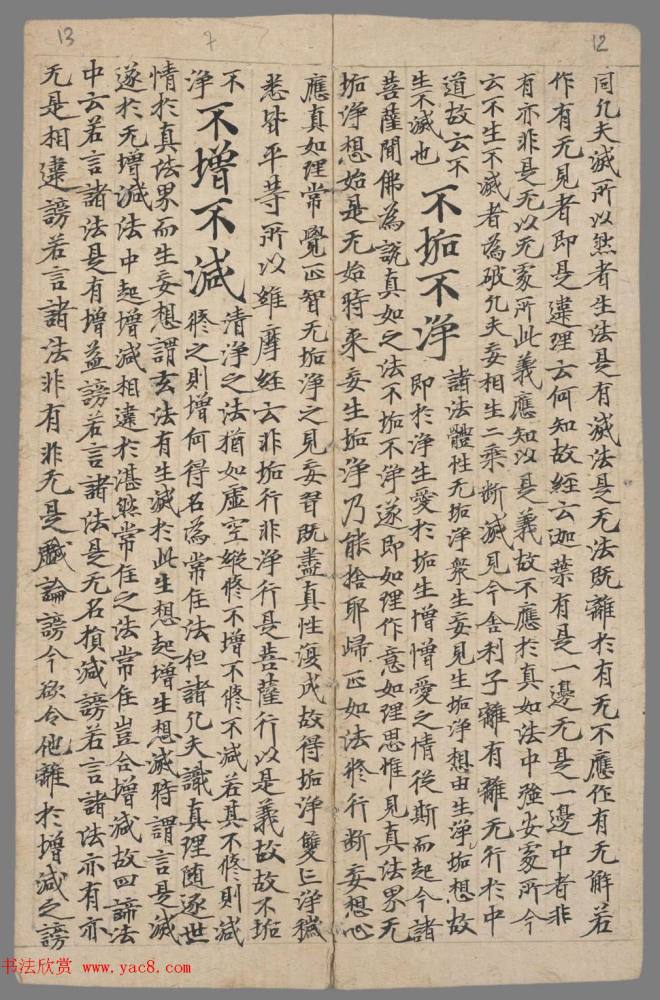 12
同凡夫滅所以然者生法是有滅法是无法既離於有无不應作有无解若
作有无見者即是違理云何知故經云迦葉有是一邊无是一邊中者非
有亦非是无以无家所此義應知以是義故不應於真如法中強安家所今
云不生不滅者為破凡夫妄相生二乘斷滅見今舍利子離有離无行於中
道故云不
生不滅也 不垢不淨 諸法體性无垢淨衆生妄見生垢淨想由生淨垢想故
即於淨生愛於垢生憎憎愛之情從斯而起今諸
菩薩聞佛為說真如之法不垢不淨遂即如理作意如理思惟見真法界无
垢淨想始是无始時來妄生垢淨乃能捨耶歸正如法修行斷妄想心
應真如理常覺正智无垢淨之見妄習既盡真性復成故得垢淨雙亡淨穢
悉皆平等所以維摩經云非垢行非淨行是菩薩行以是義故故不垢
13
7
不
淨 不增不減 清淨之法猶如虛空縱修不增不修不減若其不修則減
修之則增何得名為常住法但諸凡夫識真理随逐世
情於真法界而生妄想謂玄法有生滅於此生想起增生想滅時謂言是減
遂於无增減法中起增減相違於湛然常住之法常住豈合增減故四諦法
中云若言諸法是有增益謗若言諸法是无名損減謗若言諸法亦有亦
无是相違謗若言諸法非有非无是戲論謗今欲令他離於增減之謗
书法欣赏 www.yac8.com